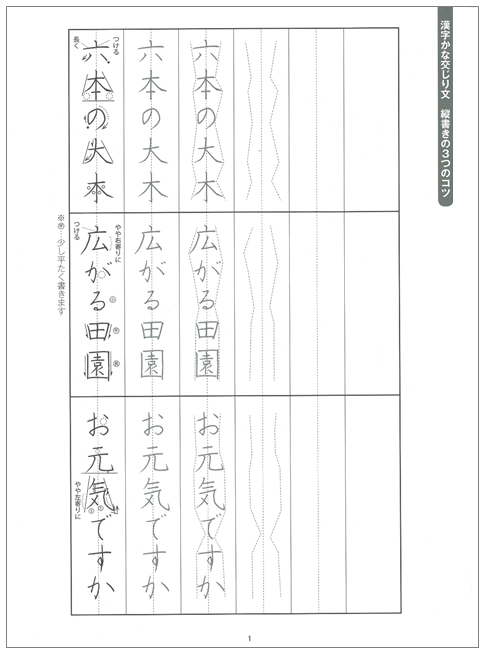 漢字かな交じり文 縦書きの3つのコツ
六本の大木
六本の大木
六本の大木
つける
長く
広がる田園
広がる田園
広がる田園
やや右寄りに
つける
お元気ですか
お元気ですか
お元気ですか
やや左寄りに
少し平たく書きます
1